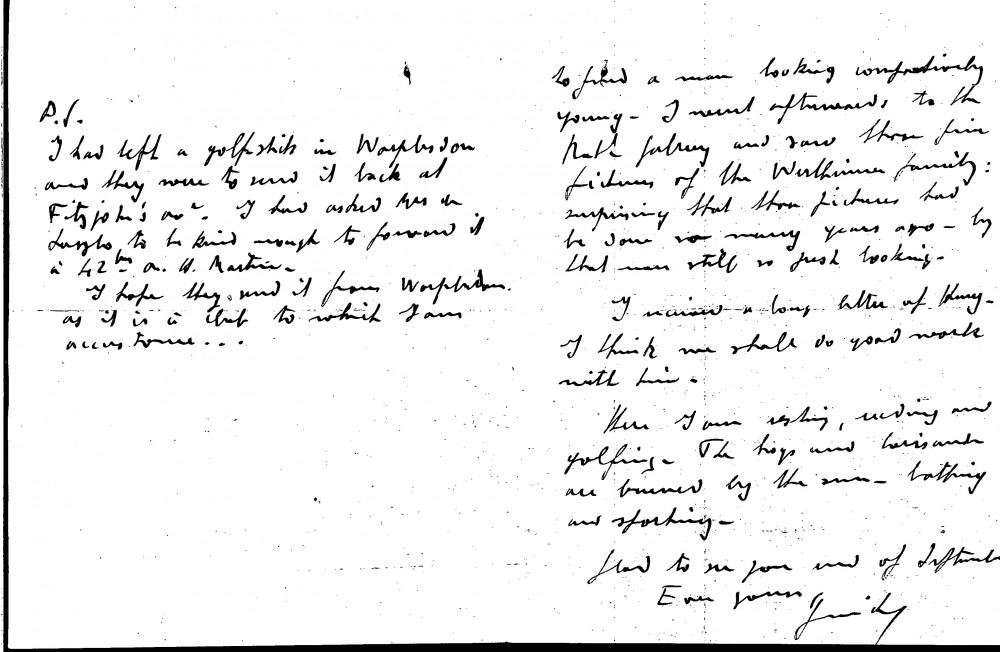 P.S.
I had left a golfstick in Worplesdon
and they were to send it back at
Fitzjohn's avᵉ. I had asked Mrs de
Laszlo to be kind enough to forward it
à 42ᵇⁱˢ av. H. Martin.
I hope they send it from Worplesdon.
as it is a club to which I am
accustome...
to find a man looking comparatively
young - I went afterwards to the
Gallery and saw those fine
pictures of the Wertheimer family:
surprising that those pictures had
be done so many years ago - by
that man still so fresh looking.
I received a long letter of
I think we shall do good work
with him -
Here I am resting, reading and
golfing - The boys and
are burned by the sun - bathing
and sporting -
Glad to see you end of September
Ever yours